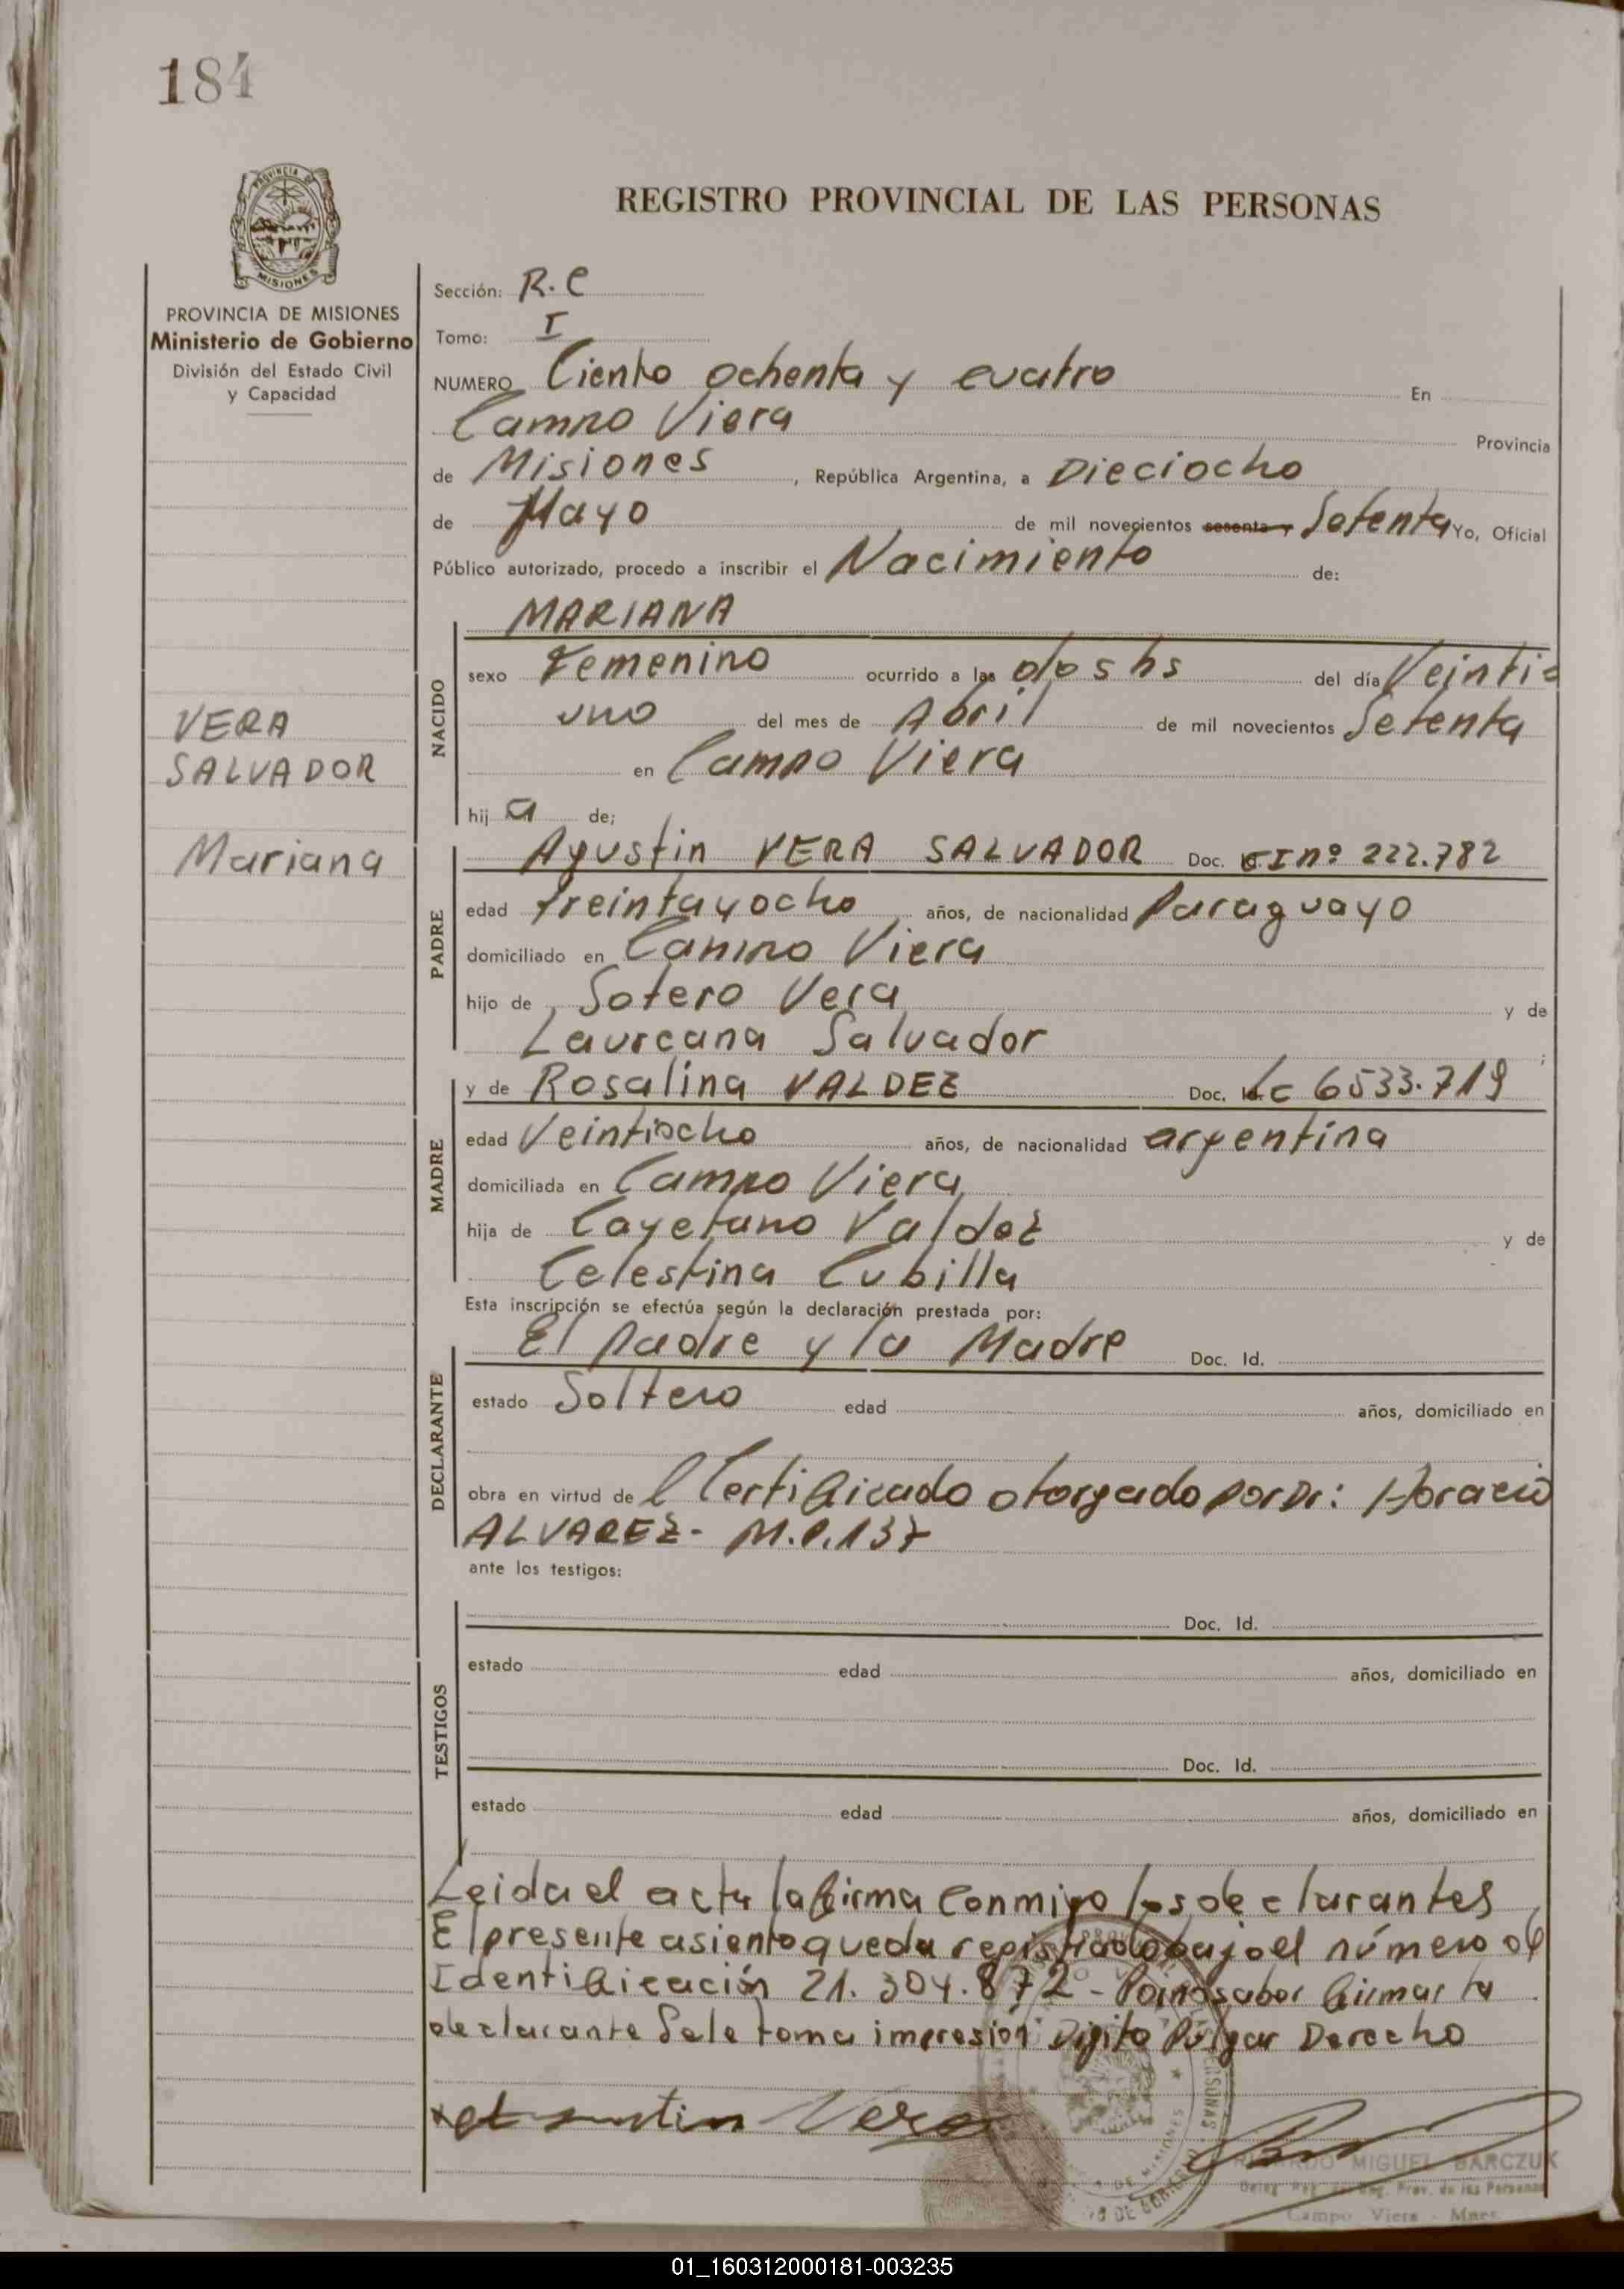 184
REGISTRO PROVINCIAL DE LAS PERSONAS
MISIONES
PROVINCIA DE MISIONES
Ministerio de Gobierno
División del Estado Civil
y Capacidad
VERA
SALVADOR
Mariana
Sección: R.C
Tomo: I
NUMERO Ciento ochenta y cuatro En
Campo Viera Provincia
de Misiones, República Argentina, a Dieciocho
de Mayo de mil novecientos sesenta y Setenta Yo, Oficial
Público autorizado, procedo a inscribir el Nacimiento de:
NACIDO
MARIANA
sexo Femenino ocurrido a las dos hs del día Veinti
uno del mes de Abril de mil novecientos Setenta
en Campo Viera
hij a de;
PADRE
Agustin VERA SALVADOR Doc. CI nº 222.782
edad treinta y ocho años, de nacionalidad Paraguayo
domiciliado en Campo Viera
hijo de Sotero Vera y de
Laureana Salvador ;
MADRE
y de Rosalina VALDEZ Doc. LC 6533.719
edad Veintiocho años, de nacionalidad argentina
domiciliada en Campo Viera
hija de Cayetano Valdez y de
Celestina Cubilla
Esta inscripción se efectúa según la declaración prestada por:
DECLARANTE
El padre y la Madre Doc. Id.
estado Soltero edad años, domiciliado en
obra en virtud de l Certificado otorgado por Dr: Horacio
ALVAREZ - M.P.137
ante los testigos:
TESTIGOS
Doc. Id.
estado edad años, domiciliado en
Doc. Id.
estado edad años, domiciliado en
Leida el acta la firma conmigo los declarantes
El presente asiento queda registrado bajo el número de
Identificación 21.304.872 - Por no saber firmar la
declarante Se le toma impresion Digito Pulgar Derecho
Vera
RICARDO MIGUEL BARCZUK
Campo Viera - Mnes.
01_160312000181-003235